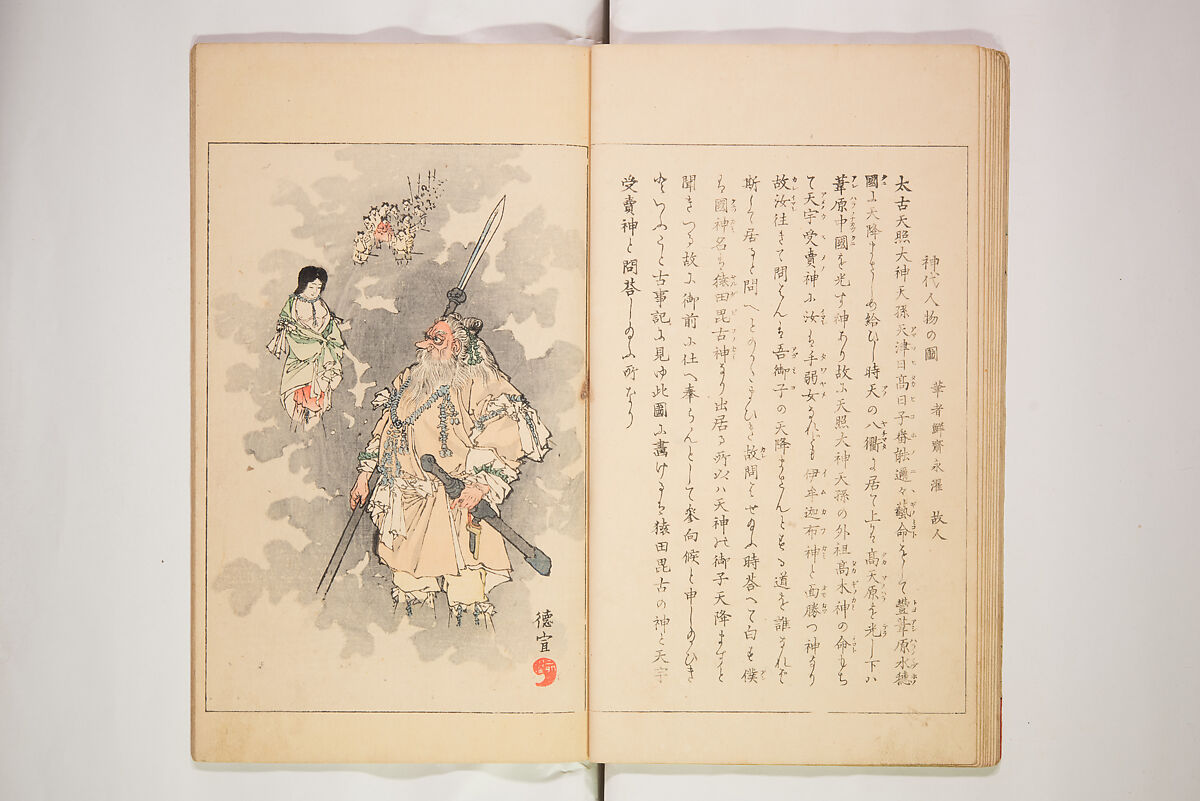 神代人物の圖　筆者鮮齋永濯　故人
太古天照大神天孫天津日高日子番能邇々藝命をして豐葦原水穂
國に天降まさしめ給ひし時天の八衢に居て上は高天原を光し下ハ
葦原中國を光す神あり故に天照大神天孫の外祖高木神の命もち
て天宇受賣神に汝は手弱女なれども伊牟迦布神と面勝つ神なり
故汝往きて問はんは吾御子の天降まさんとする道を誰なれば
斯して居ると問へとのたまひき故問はせ給ふ時答へて白す僕
は國神名は猿田毘古神なり出居る所以ハ天神の御子天降ますと
聞きつる故に御前に仕へ奉らんとして參向候と申し給ひき
と古事記に見ゆ此圖に畵けるは猿田毘古の神と天宇
受賣神と問答し給ふ所なり
德宜